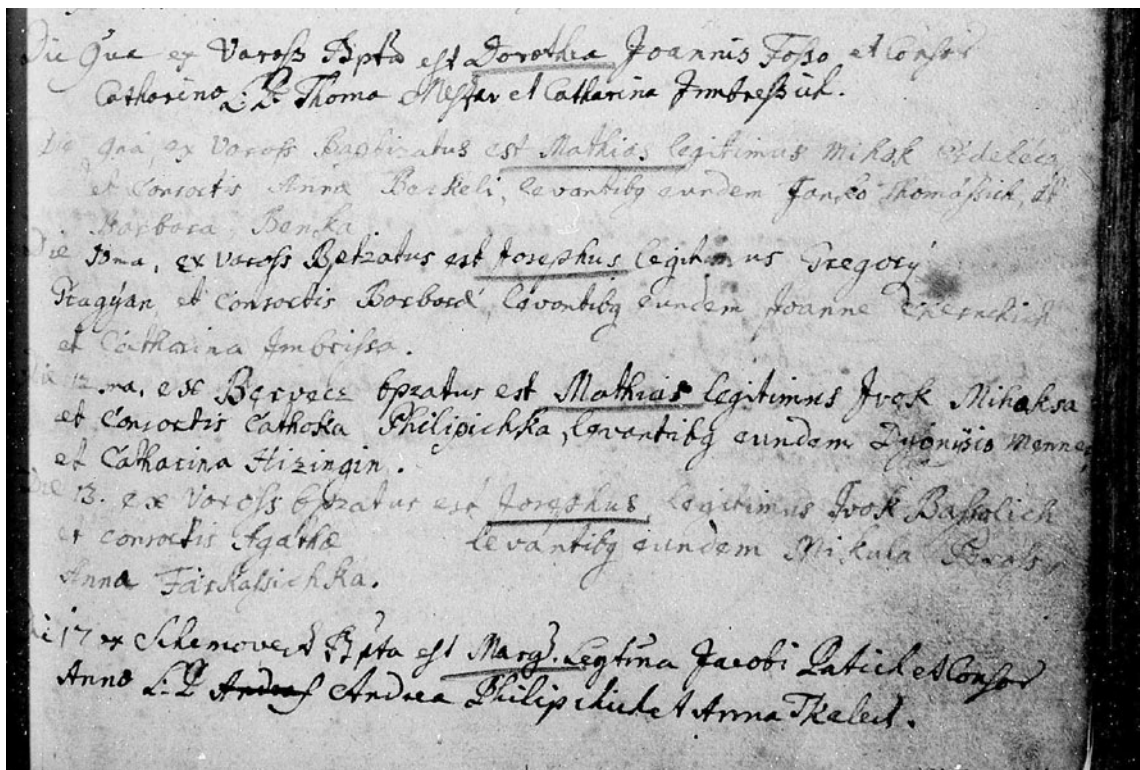 Die Qua ex Vaross Bpta est Dorothea Joannis Foso et Consor
Catharina L: P. Thoma Mesar et Catharina Jmbressich.
Die qua, ex Vaross Baptizatus est Mathias legitimus Mihok
et Consortis Anna Berkeli, levantibq eundem Janko Thomassich, et
Barbara Benka
Die ma, ex Vaross Bptzatus est Josephus legitimus Gregory
Pragyan et Consortis Barbara, levantibq eundem Joanne
et Catharina Jmbrissa.
Die 12.ma, ex bpzatus est Mathias legitimus Jvok Mihaksa
et Consortis Cathoka Philipichka, levantibq eundem Dyonisio
et Catharina Hizingin.
Die 13. ex Vaross bpzatus est Josephus, legitimus Jvok
et consortis Agatha levantibq eundem Mikula
Anna Farkassichka.
Die 17 ex Bpta est Marg. Legtima Jacobi Patich et Consor
Anna L: P. Andrea Philipchich et Anna Tkalech.